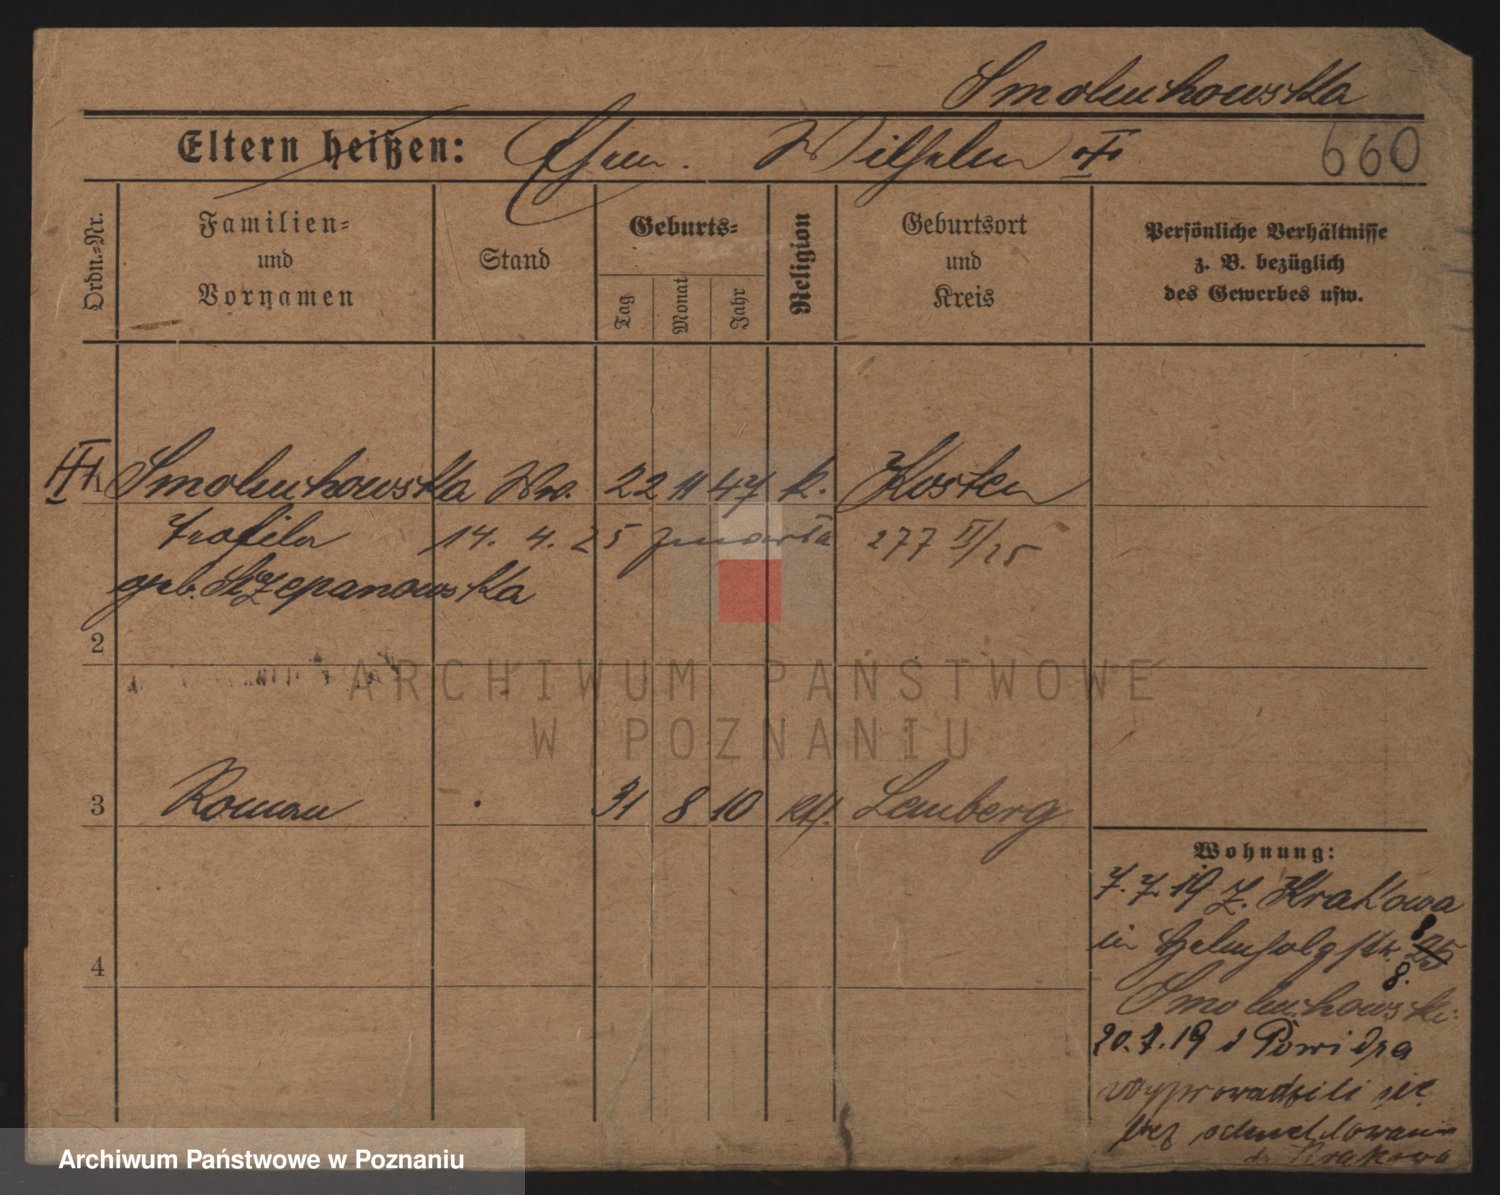 Smoluchowska
Eltern heißen: Ehem. Wilhelm
660
Ordn.-Nr.
Familien-
und
Vornamen
Stand
Geburts-
Tag
Monat
Jahr
Religion
Geburtsort
und
Kreis
Persönliche Verhältnisse
z. B. bezüglich
des Gewerbes usw.
1 Smoluchowska Ww. 22 11 47 k. Kosten
Teofila 14. 4. 25 zmarła 277 II/25
geb. Szczepanowska
2
3 Roman 31 8 10 kth. Lemberg
4
Wohnung:
7. 7. 19 z. Krakowa
in 8 25
8.
Smoluchowski
20. 7. 19 d Powidza
wyprowadzili się
bez odmeldowania
do Krakowa
ARCHIWUM PAŃSTWOWE
W POZNANIU
Archiwum Państwowe w Poznaniu